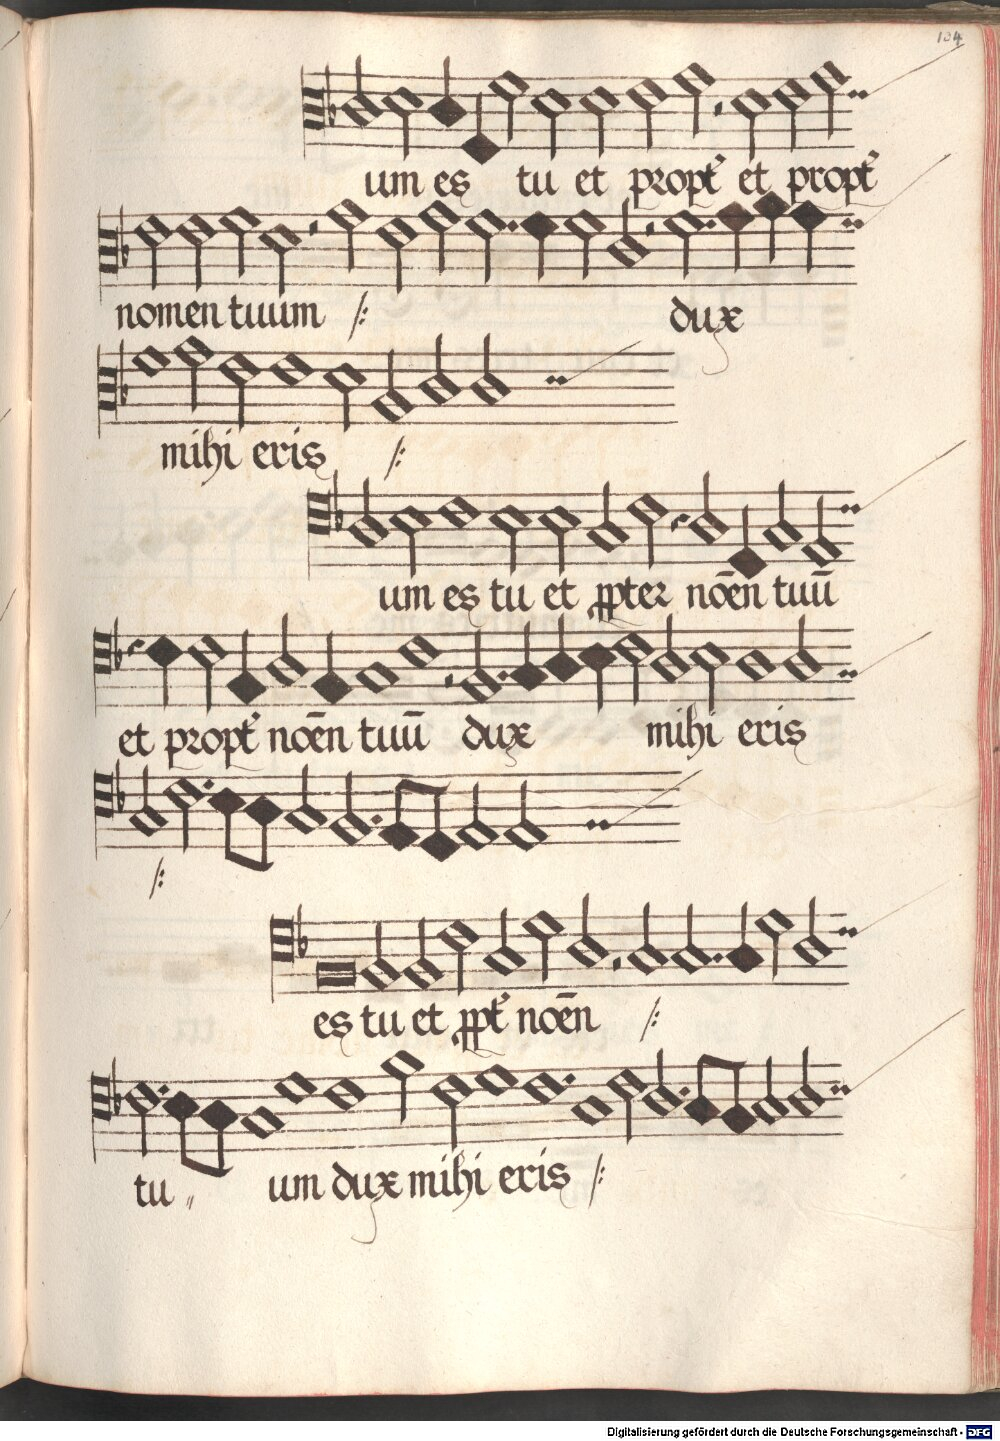 104
um es tu et propt̃ et propt̃
nomen tuum /: dux
mihi eris /:
um es tu et ꝓpter nōēn tuū
et propt̃ nōēn tuū dux mihi eris
/:
es tu et ꝓpt̃ nōēn /:
tu〃 um dux mihi eris /:
Digitalisierung gefördert durch die Deutsche Forschungsgemeinschaft - DFG